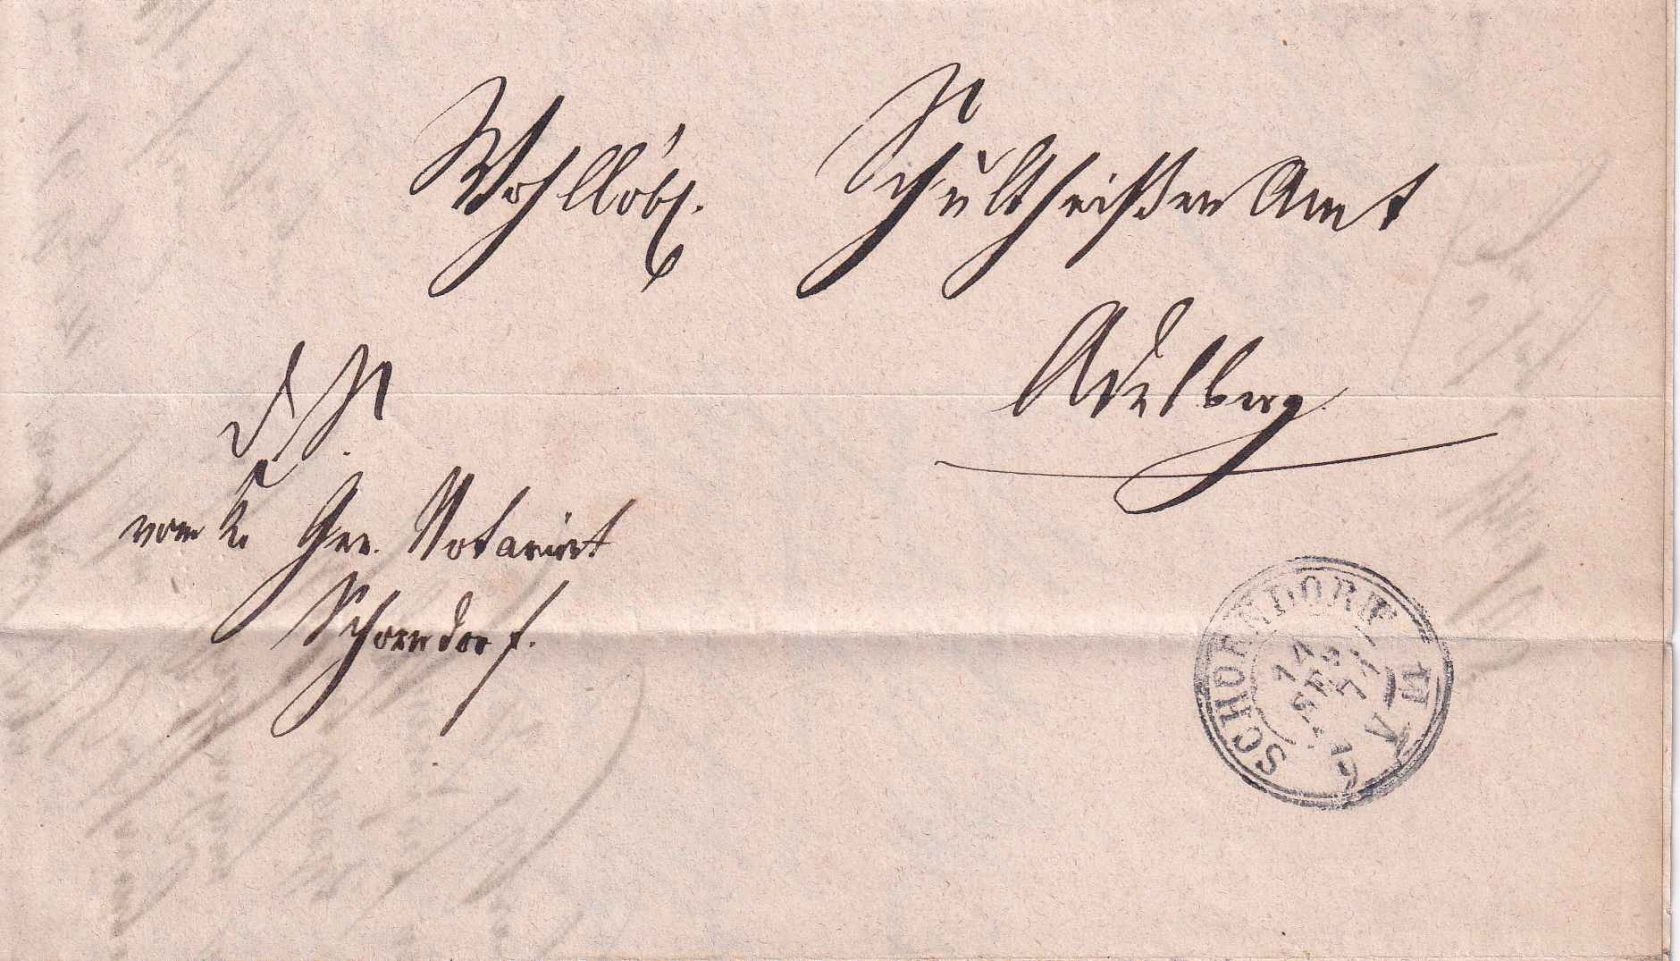 Wohllöbl. Schultheißen Amt
Adelberg
D. S.
vom K. Ger. Notariat
Schorndorf.
SCHORNDORF
14
SEP